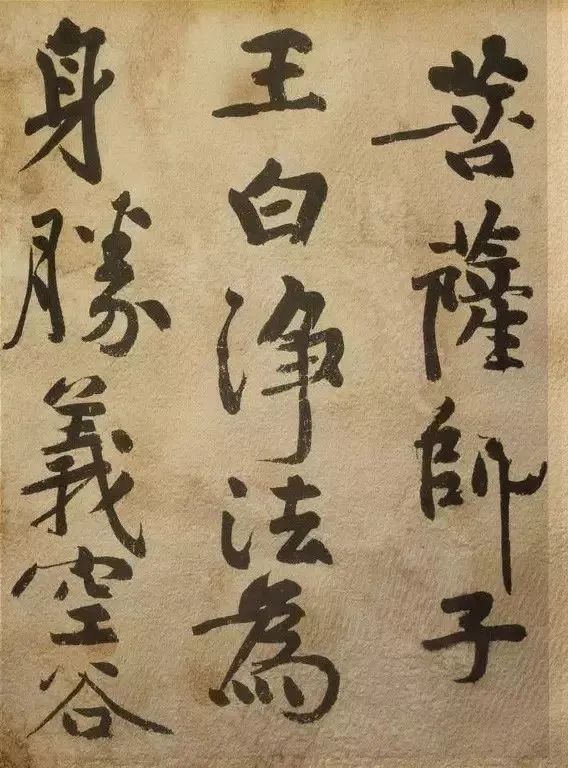 菩薩師子
王白净法為
身勝義空谷